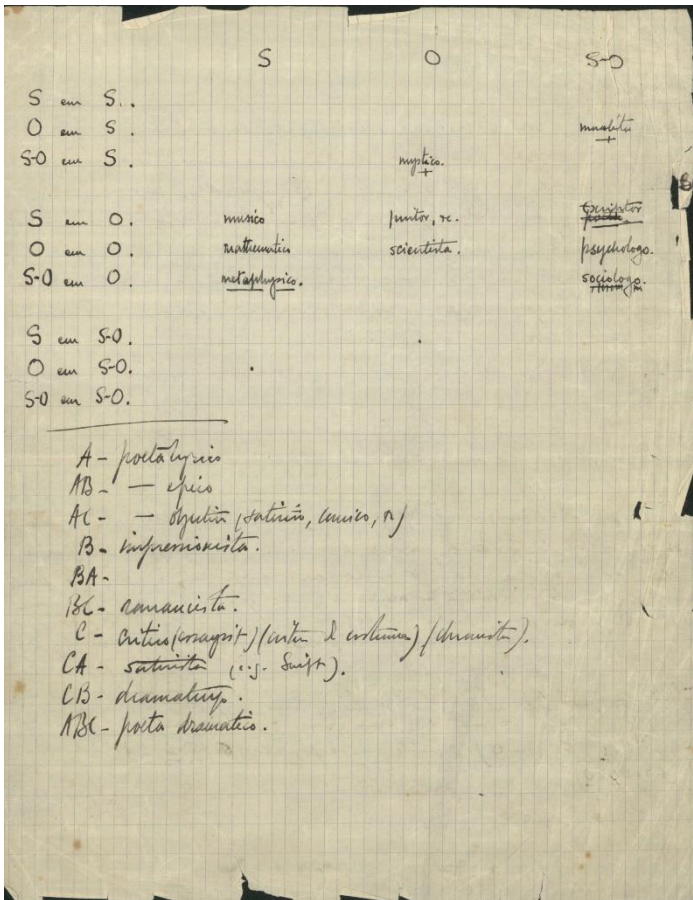 S O S-O
S em S.
O em S. moralista
S-O em S. mystico.
B
S em O. musico pintor, etc. escriptor
O em O. mathematico scientista. psychologo.
S-O em O. metaphysico. sociologo.
S em S-O.
O em S-O.
S-O em S-O.
A - poeta lyrico
AB - — epico
AC - — (satirico, comico, etc)
B - impressionista.
BA -
BC - romancista.
C - critico (essayist) (critica de costumes)
CA - satirista (e.g. Swift).
CB - dramaturgo.
ABC - poeta dramatico.